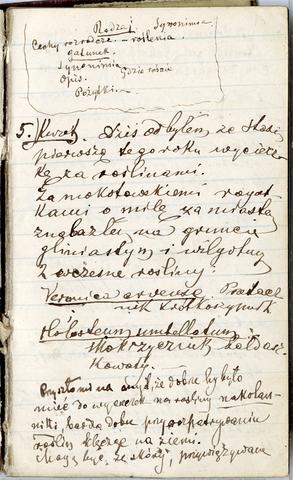 Rodzaj Synonimia.
Cechy rozrodcze — roślenia.
gatunek.
Synonimia
Opis. Gdzie rośnie
Pożytki.
5.) Marzec. Dziś odbyłem ze Stasią
pierwszą tego roku wyciecz-
kę za roślinami.
Za mokotowskiemi rogat-
kami o milę za miastem
znalazłem na gruncie
gliniastym i wilgotnym
2 wczesne rośliny:
Veronica arvensis Przetacz-
nik
Holosteum umbellatum,
Mokrzycznik baldasz-
kowaty.
Przyszło mi na myśl, że dobrze by było
mieć do wycieczek na rośliny nakolan-
niki, bardzo dobre przy
roślin klęcząc na ziemi.
Mogą być, ze skóry, przywiązywane